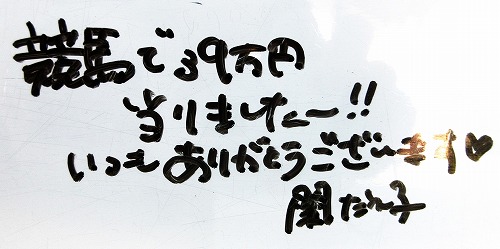 競馬で39万円
当りましたー!!
いつもありがとうございます♥
関だんご